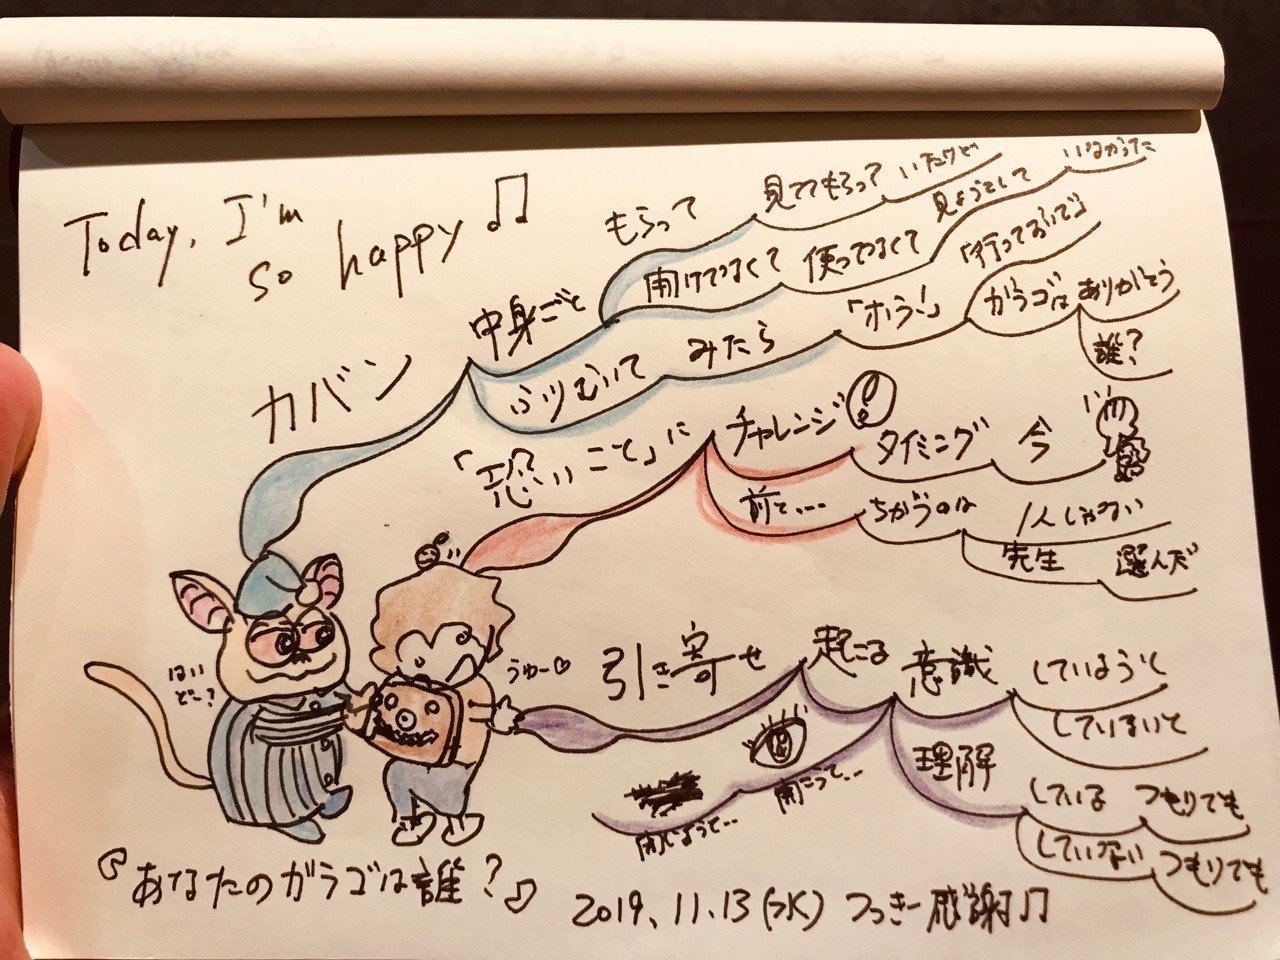 Today, I'm
so happy♫
カバン
中身ごと
もらって
見ててもらって
いたけど
いなかった
開けてなくて
使ってなくて
見ようとして
ふりむいて
みたら
「ホラ!」
「行っておいで」
ガラゴは
ありがとう
誰?
「恐いこと」に
チャレンジ
!
タイミング
今
前と…
ちがうのは
1人じゃない
先生
選んだ
引き寄せ
起こる
意識
していようと
していないと
理解
している
つもりでも
していない
つもりでも
開こうって…
閉じようと…
はい
どーぞ
うゅー♡
『あなたのガラゴは誰?』
2019、11.13(水) つっきー感謝♫